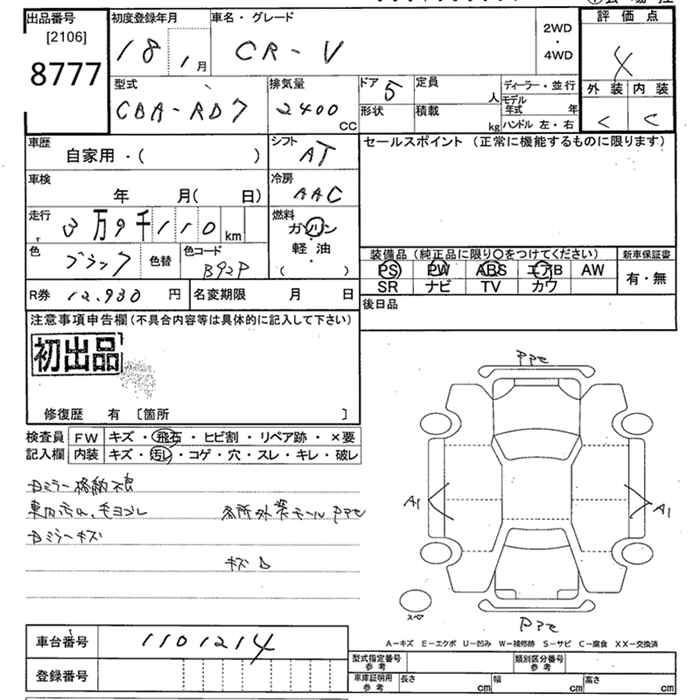 出品番号 初度登録年月 車名・グレード 評価点
[2106] 18年 1月 CR-V 2WD・4WD 4
8777
型式 排気量 ドア 5 定員 人 ディーラー・並行 外装 内装
CBA-RD7 2400 CC 形状 積載 kg モデル年式 年 C C
ハンドル 左・右
車歴 自家用・( ) シフト AT セールスポイント (正常に機能するものに限ります)
車検 年 月( 日) 冷房 AAC
走行 3万9千110km 燃料 ガソリン
軽油
( )
色 ブラック 色替 色コード B92P 装備品 (純正品に限り〇をつけてください) 新車保証書
PS PW ABS エアB AW 有・無
SR ナビ TV カワ
R券 12,930円 名変期限 月 日 後日品
注意事項申告欄(不具合内容等は具体的に記入して下さい)
初出品
修復歴 有 [箇所 ]
検査員 FW キズ・飛石・ヒビ割・リペア跡・×要
記入欄 内装 キズ・汚レ・コゲ・穴・スレ・キレ・破レ
ミラー格納不良
各所外装モール PPセ
ミラーキズ
キズ
PPセ
A1
A1
PPセ
A-キズ E-エクボ U-凹み W-補修跡 S-サビ C-腐食 XX-交換済
車台番号 1101214 型式指定番号 参考 類別区分番号 参考
登録番号 車庫証明用 参考 長さ cm 幅 cm 高さ cm